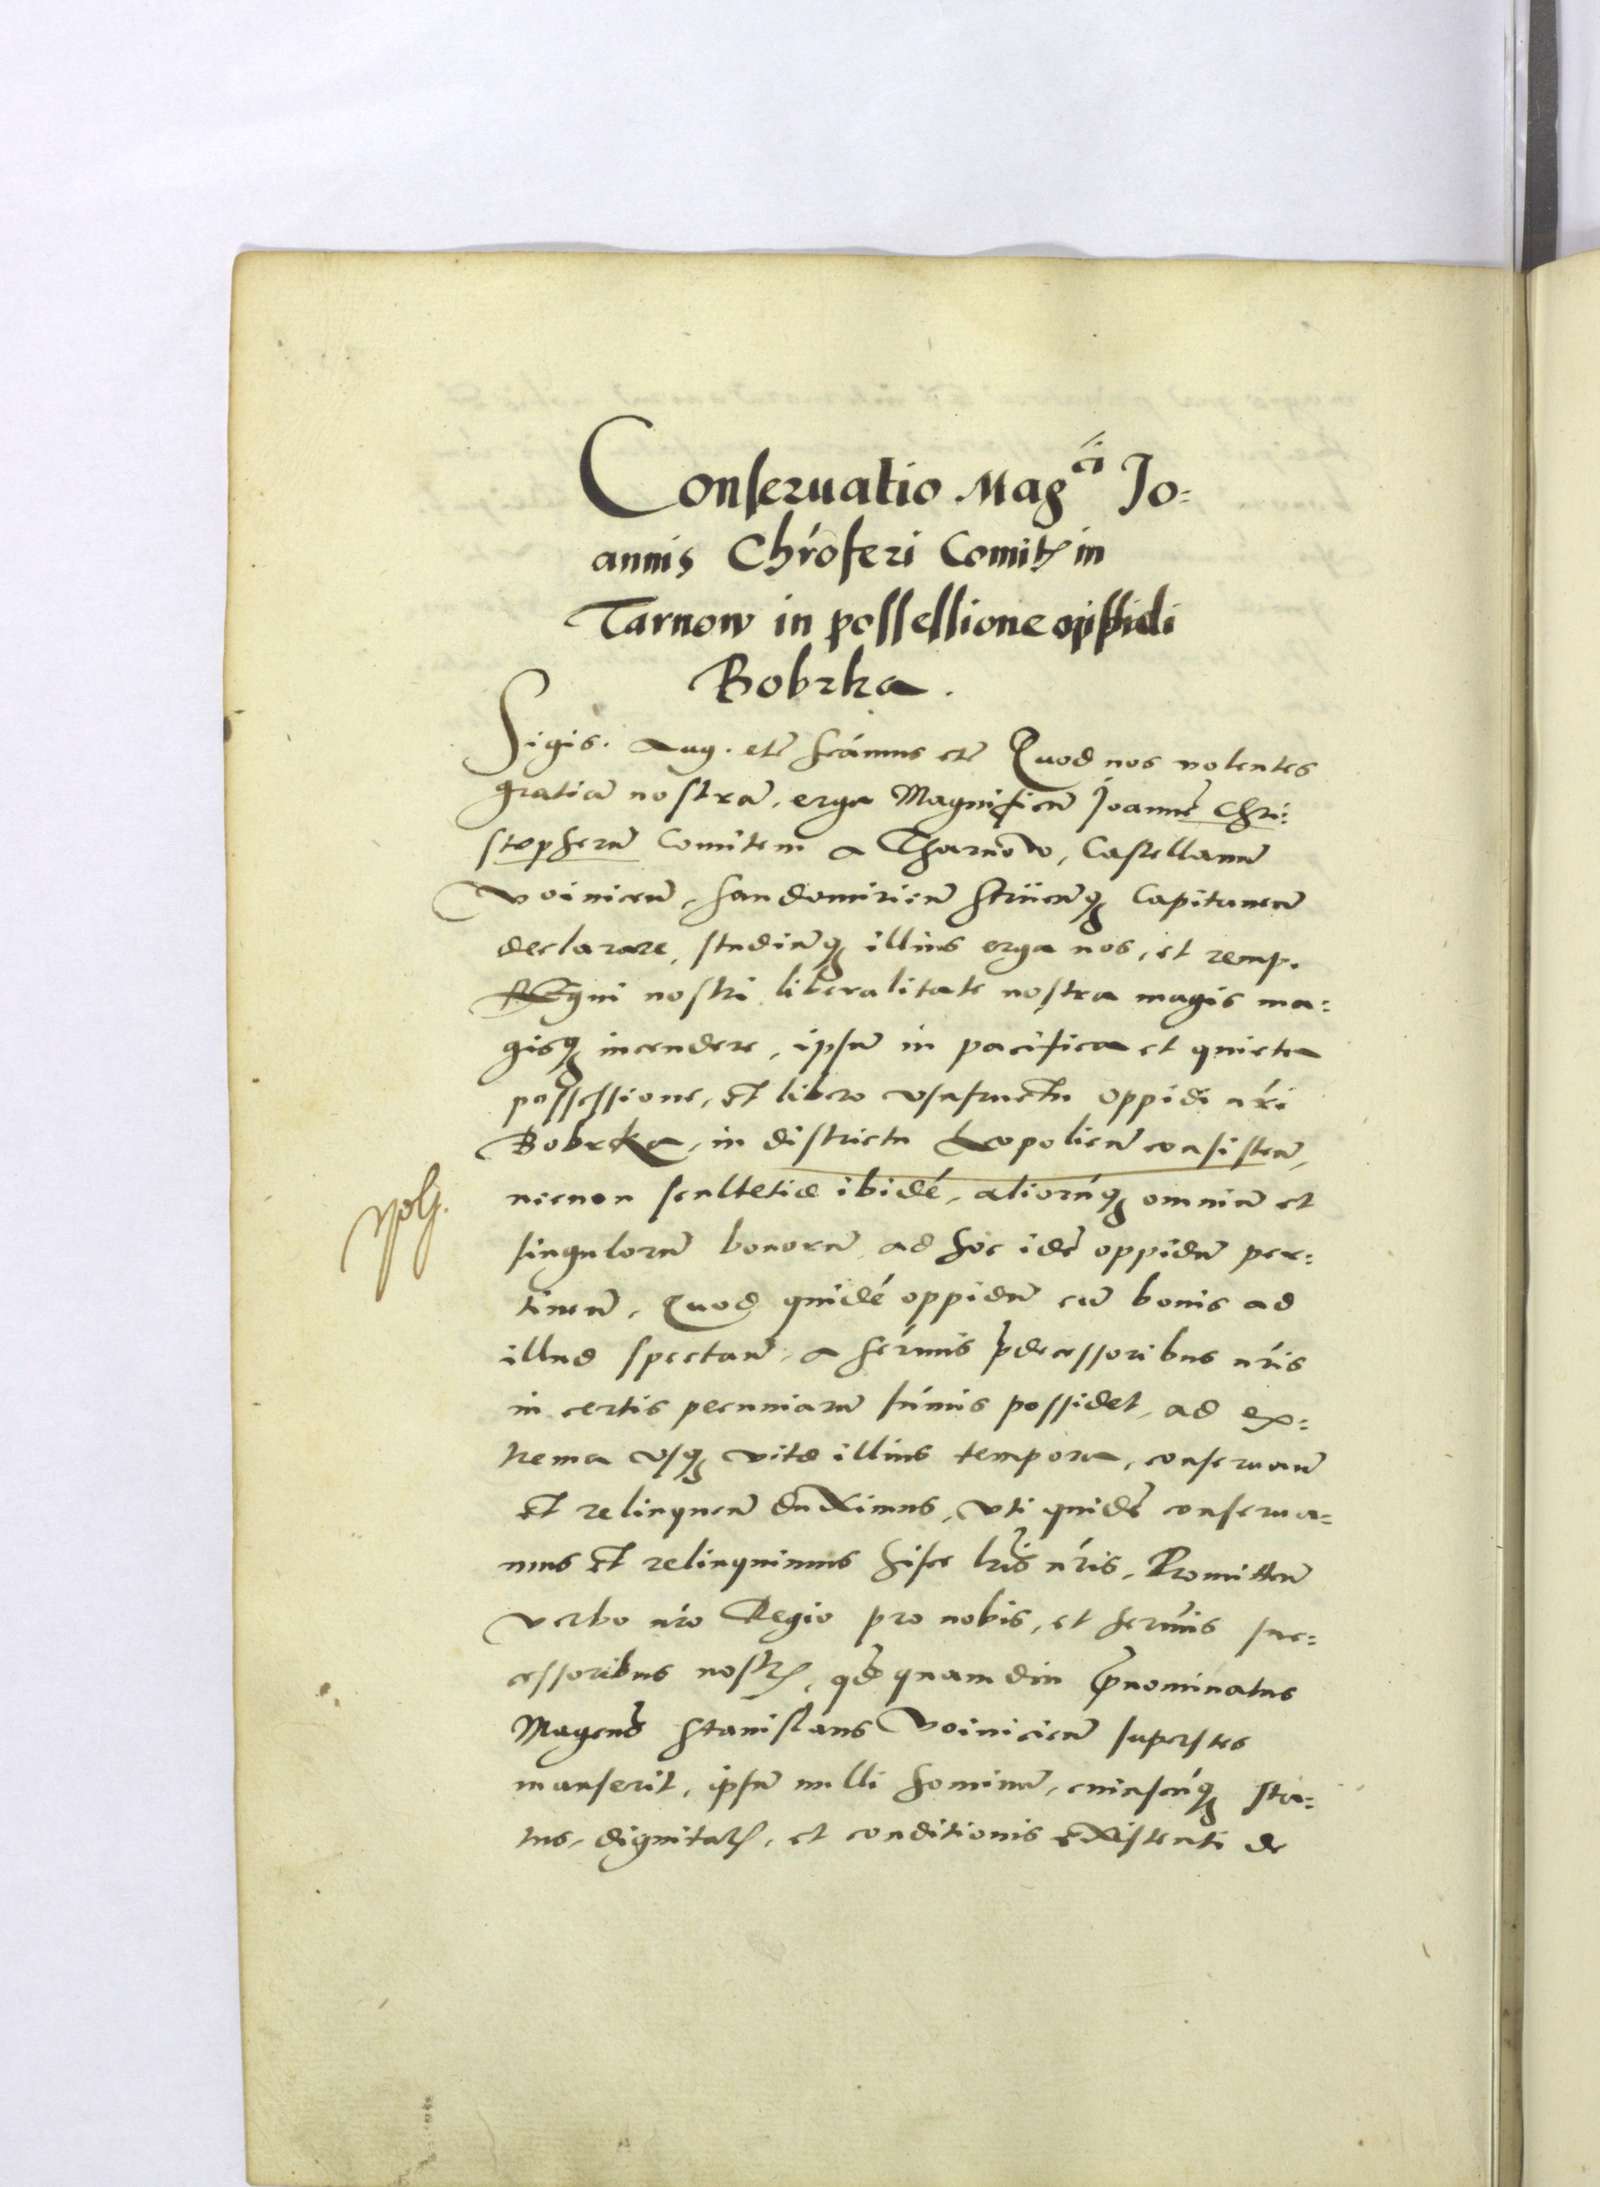 Conseruatio Mag^ci Jo=
annis Chr̃oferi Comit̃ in
Tarnow in possessione oppidi
Bobrka.
Sigis. Aug. etc̃ scãmus etc̃ Quod nos uolentes
gratiã nostrã, erga Magnificũ Joannẽ Chri=
stopherũ Comitem a Tharnow, Castellanũ
Voiniceñ, Sandomirieñ Striieñq3 Capitaneũ
declarare, studiũq3 illius erga nos, et remp.
Regni nostri liberalitate nostra magis ma=
gisq3 incendere, ipsũ in pacifica et quieta
possessione, et libero vsufructu oppidi nr̃i
Bobrka, in districtu Leopolieñ consisteñ,
nicnon scultetiæ ibidẽ, aliorũq3 omniũ et
singulorũ bonorũ ad hoc idẽ oppidũ per=
tineñ, Quod quidẽ oppidũ cũ bonis ad
illud spectañ, a ser̃mis p̃decessoribus nr̃is
in certis pecuniarũ sum̃is possidet, ad ex=
trema vsq3 vitæ illius tempora, conseruañ
et relinqueñ duximus, vti quidẽ conserua=
mus et relinquimus hisce lr̃is nr̃is, Promitteñ
verbo nr̃o Regio pro nobis, et ser̃mis suc=
cessoribus nostr̃, qd̃ quamdiu p̃nominatus
Magcus Stanislaus Voinicieñ superstes
manserit, ipsũ nulli hominũ, cuiuscũq3 sta=
tus, dignitat̃, et conditionis existenti de